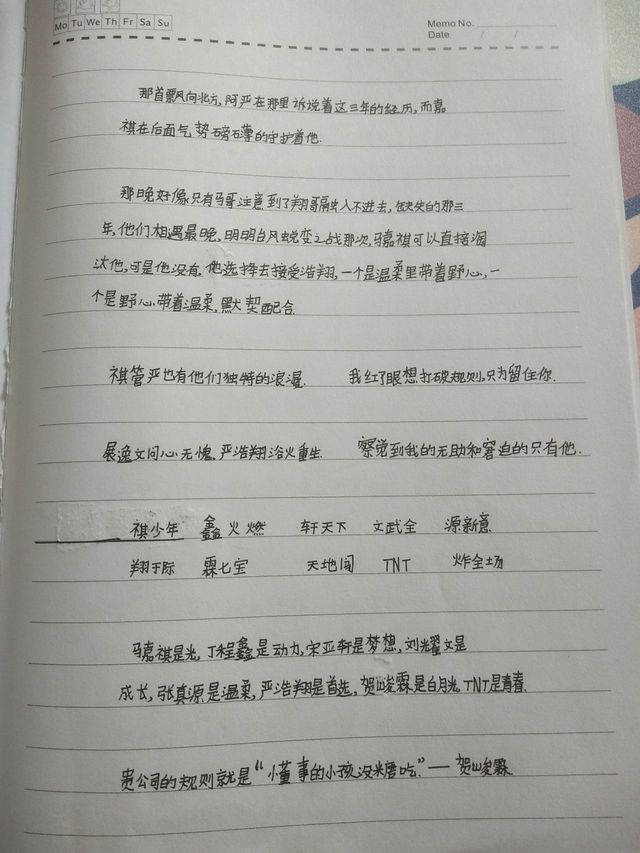 Mo Tu We Th Fr Sa Su
Memo No.
Date / /
那首飘向北方,阿严在那里诉说着这三年的经历,而嘉
祺在后面气势磅礴的守护着他.
那晚好像只有马哥注意到了翔哥融入不进去,缺失的那三
年,他们相遇最晚,明明台风蜕变之战那次,马嘉祺可以直接淘
汰他,可是他没有,他选择去接受浩翔,一个是温柔里带着野心,一
个是野心带着温柔,默契配合.
祺管严也有他们独特的浪漫. 我红了眼想打破规则,只为留住你.
展逸文问心无愧,严浩翔浴火重生. 察觉到我的无助和窘迫的只有他.
祺少年 鑫火燃 轩天下 文武全 源新意
翔于际 霖七宝 天地闯 TNT 炸全场
马嘉祺是光,丁程鑫是动力,宋亚轩是梦想,刘耀文是
成长,张真源是温柔,严浩翔是首选,贺峻霖是白月光,TNT是青春.
贵公司的规则就是“懂事的小孩没糖吃”——贺峻霖